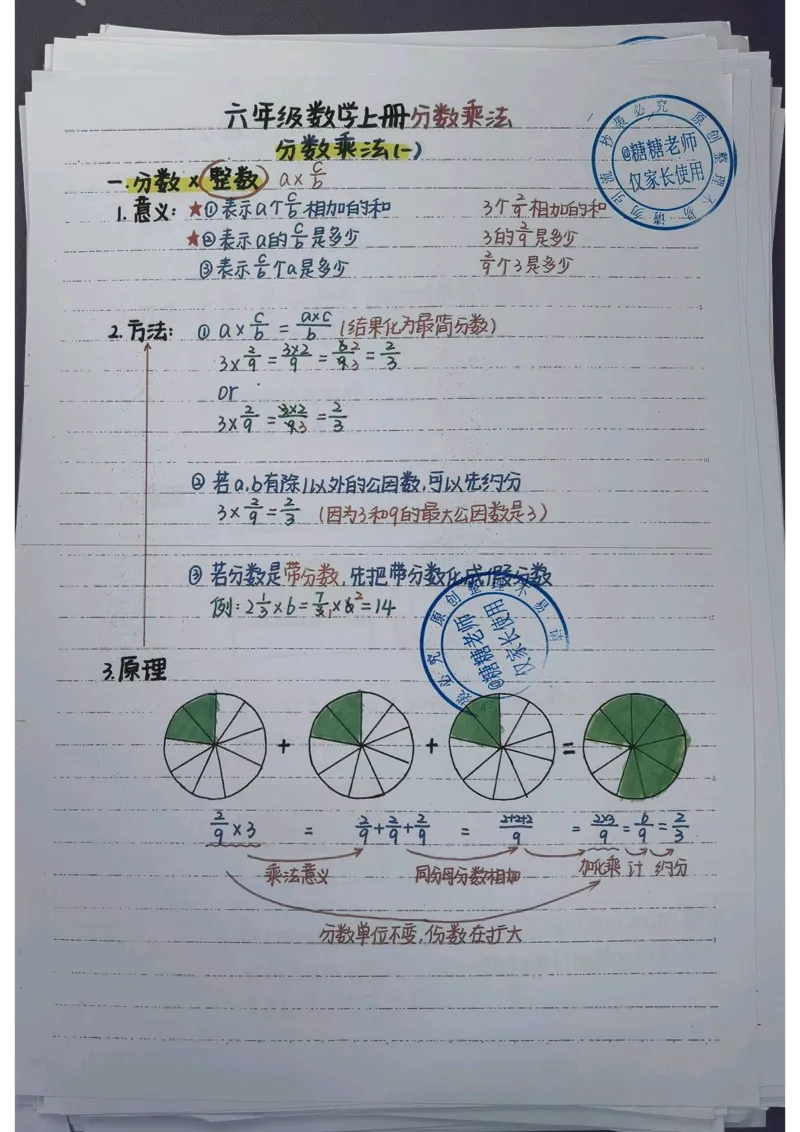 六年级数学上册分数乘法
分数乘法(一)
一.分数×整数 a×c/b
1.意义: ★①表示a个c/b相加的和 3个2/9相加的和
★②表示a的c/b是多少 3的2/9是多少
③表示c/b个a是多少 2/9个3是多少
2.方法: ①a×c/b=a×c/b(结果化为最简分数)
3×2/9=3×2/9=6 2/9 3=2/3
or
3×2/9=3×2/9 3=2/3
②若a,b有除1以外的公因数,可以先约分
3×2/9=2/3 (因为3和9的最大公因数是3)
③若分数是带分数,先把带分数化成假分数
例:2 1/3×6=7/3 1×6 2=14
3.原理
+ + =
2/9×3 = 2/9+2/9+2/9 = 2+2+2/9 = 2×3/9=6/9=2/3
乘法意义 同分母分数相加 加化乘 计 约分
分数单位不变,份数在扩大
抄袭必究 原创整理不易 请勿引流
@糖糖老师
仅家长使用
必究 原创整理不易 请
@糖糖老师
仅家长使用